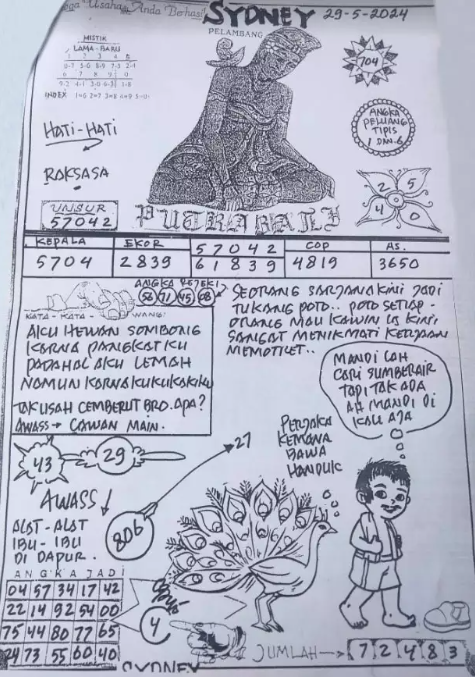 Usaha Anda Berhasil
SYDNEY 29-5-2024
PELAMBANG
MISTIK
LAMA - BARU
INDEX
704
HATI-HATI
ANGKA
PELUANG
TIPIS
1 DAN 6
RAKSASA
2 5
4 0
UNSUR
57042
PUTRA BALI
KEPALA EKOR 57042 COP AS.
5704 2839 61839 4819 3650
ANGKA REJEKI
56 71 45 08
KATA-KATA WANG:
AKU HEWAN SOMBONG
KARNA PANGKATKU
PADAHAL AKU LEMAH
NAMUN KARNA KUKUKAKIKU
TAK USAH CEMBERUT BRO. APA?
AWASS → CAWAN MAIN.
SEORANG SARJANA KINI JADI
TUKANG POTO.. POTO SETIAP-
ORANG MAU KAWIN IA KINI,
SANGAT MENIKMATI KERJAAN
MEMOTRET..
MANDI LAH
CARI SUMBER AIR
TAPI TAK ADA
AH MANDI DI
KALI AJA
PERJAKA
KEMANA
BAWA
HANDUK
43
29
27
806
AWASS
ALAT-ALAT
IBU-IBU
DI DAPUR.
ANGKA JADI
04 57 34 17 42
22 14 92 54 00
75 44 80 77 65
24 73 55 60 40
4
JUMLAH → 7 2 4 8 3
SYDNEY